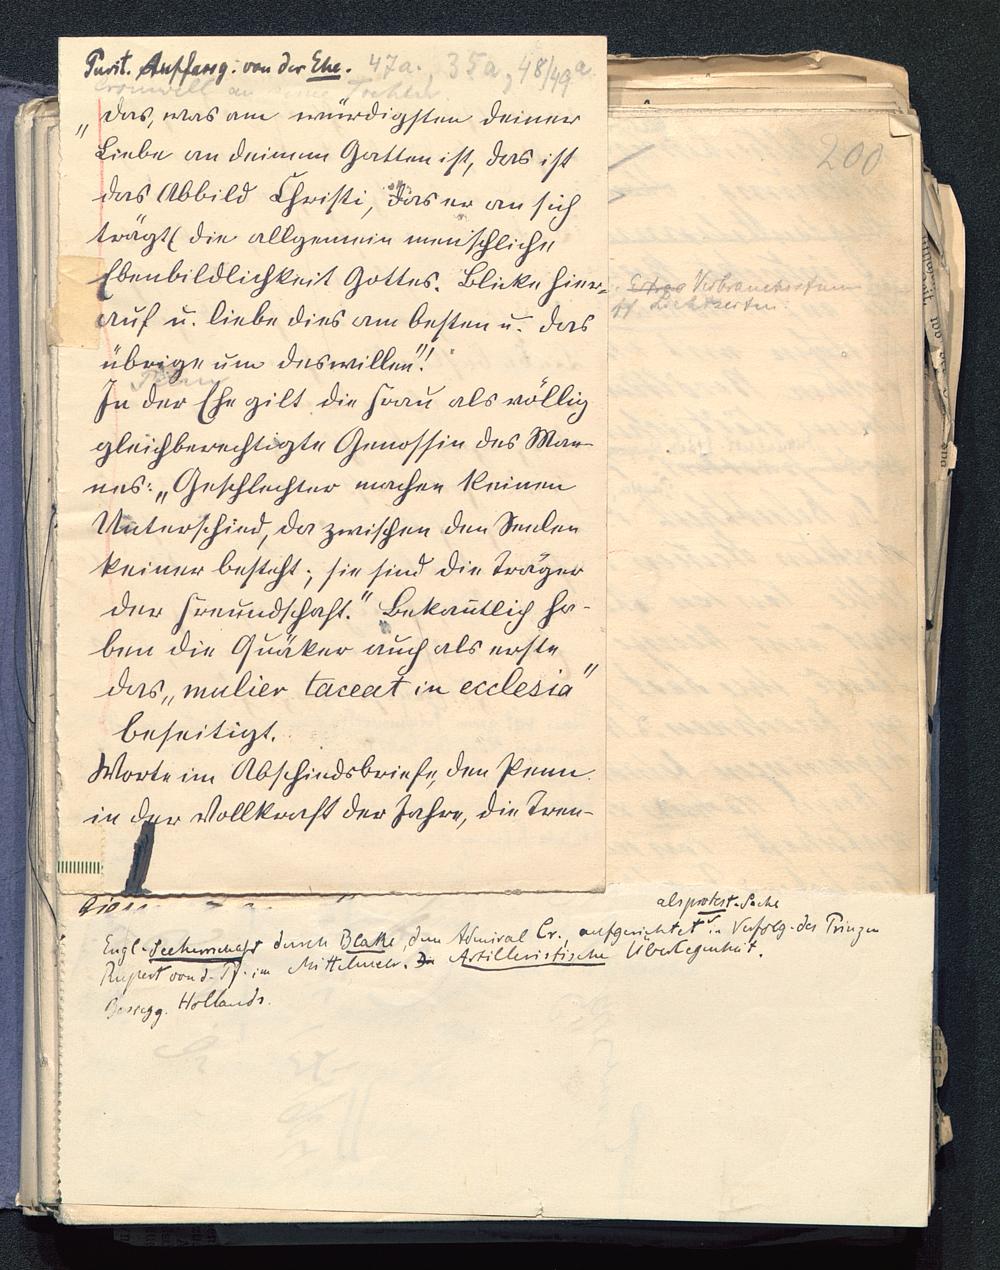 Purit. Auffassg. von der Ehe. 47a., 35a, 48/49a.
Cromwell an seine Tochter
„das, was am würdigsten deiner
Liebe an deinem Gatten ist, das ist
das Abbild Christi, das er an sich
trägt (die allgemein menschliche
Ebenbildlichkeit Gottes. Blicke hier-
auf u. liebe dies am besten u. das
übrige um deswillen"!
Penn
In der Ehe gilt die Frau als völlig
gleichberechtigte Genossin des Man-
nes: „Geschlechter machen keinen
Unterschied, da zwischen den Seelen
keiner besteht; sie sind die Träger
der Freundschaft." Bekanntlich ha-
ben die Quäker auch als erste
das „mulier taceat in ecclesia"
beseitigt.
Worte im Abschiedsbriefe, den Penn
in der Vollkraft der Jahre, die Tren-
200
als protest. Sache
Engl. Seeherrschaft durch Blake, dem Admiral Cr. aufgerichtet in Verfolg. des Prinzen
Rupert von d. Pf. im Mittelmeer. Artilleristische Überlegenheit.
Besiegg. Hollands.